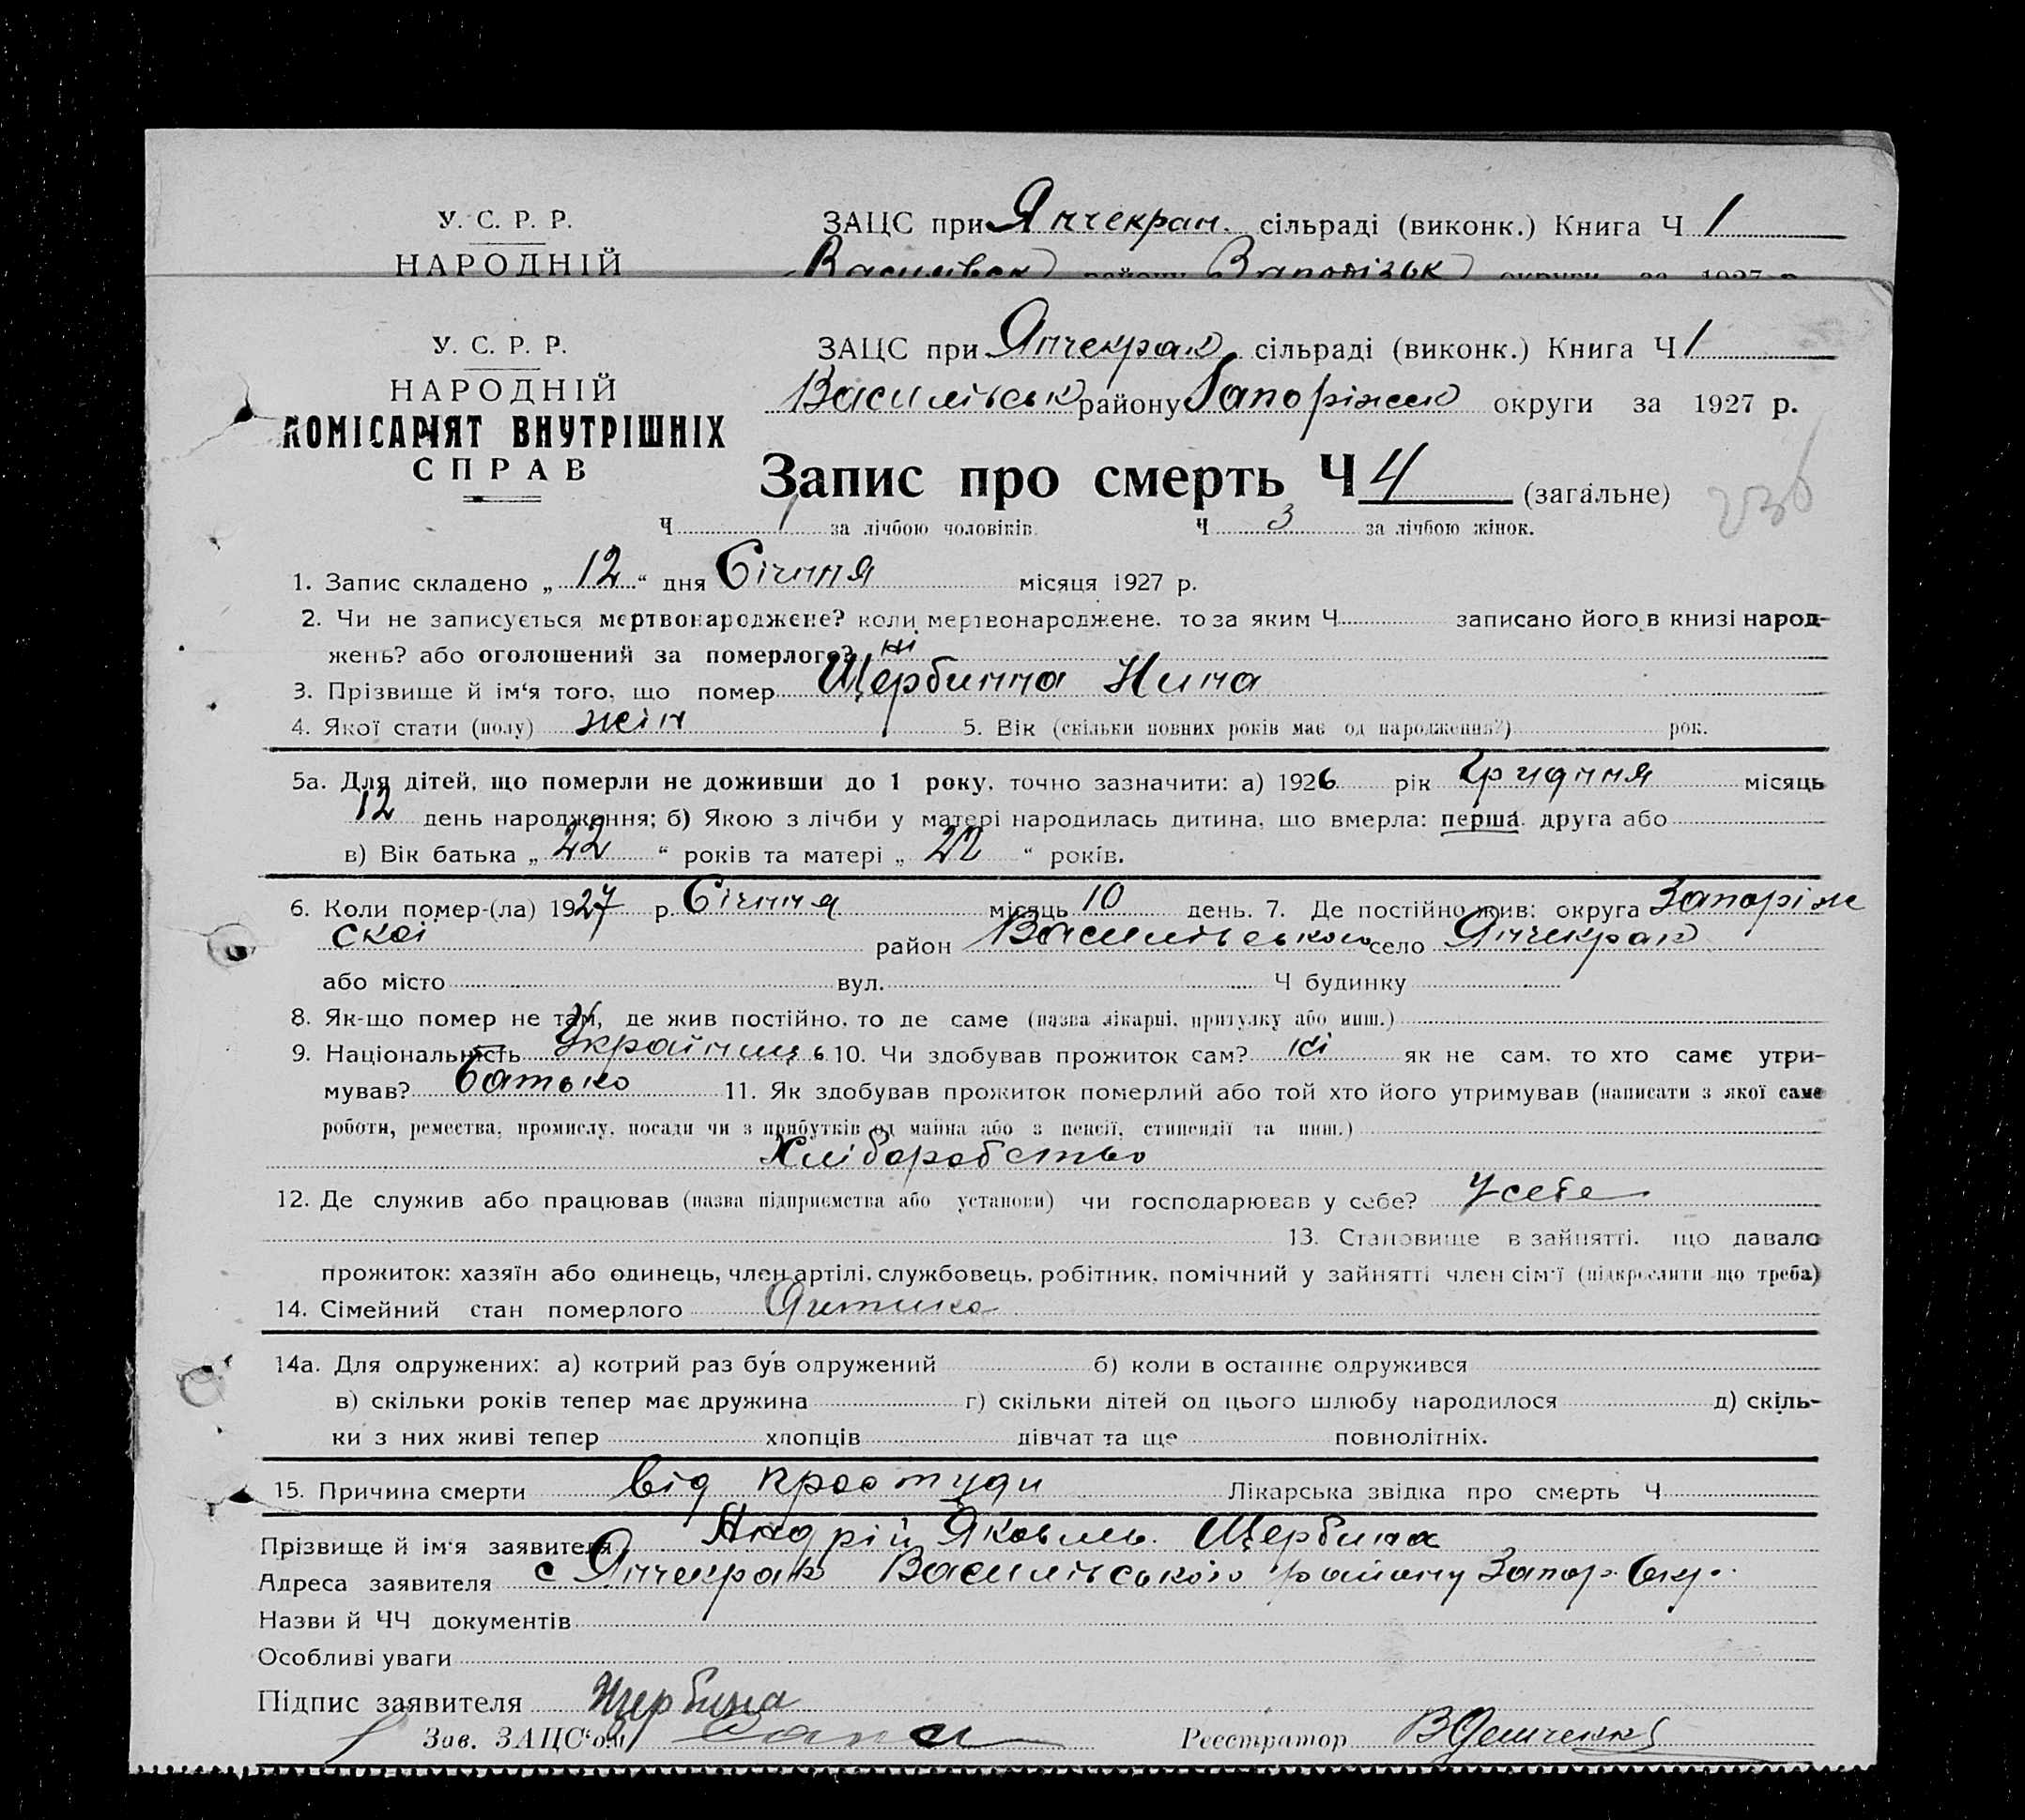 У. С. Р. Р.
НАРОДНІЙ
ЗАЦС при Янчекран. сільраді (виконк.) Книга Ч 1
Василівськ району Запорізьк округи за 1927 р.
У. С. Р. Р.
НАРОДНІЙ
КОМІСАРІЯТ ВНУТРІШНІХ
СПРАВ
ЗАЦС при Янчекрак сільраді (виконк.) Книга Ч 1
Василівськ району Запоріжск округи за 1927 р.
Запис про смерть Ч 4 (загальне)
236
Ч 1 за лічбою чоловіків. Ч 3 за лічбою жінок.
1. Запис складено „ 12 “ дня Січння місяця 1927 р.
2. Чи не записується мертвонароджене? коли мертвонароджене, то за яким Ч записано його в книзі народ-
жень? або оголошений за померлого? ні
3. Прізвище й ім‘я того, що помер Щербинна Нина
4. Якої стати (полу) жін 5. Вік (скільки повних років має од народження?) рок.
5а. Для дітей, що померли не доживши до 1 року, точно зазначити: а) 1926 рік Грудння місяць
12 день народження; б) Якою з лічби у матері народилась дитина, що вмерла: перша, друга або
в) Вік батька „ 22 “ років та матері „ 22 “ років.
6. Коли помер-(ла) 1927 р. Січння місяць 10 день. 7. Де постійно жив: округа Запоріж
скоі район Василівського село Янчекрак
або місто вул. Ч будинку
8. Як-що помер не там, де жив постійно, то де саме (назва лікарні, притулку або инш.)
9. Національність Украіниць 10. Чи здобував прожиток сам? ні як не сам, то хто саме утри-
мував? Батько 11. Як здобував прожиток померлий або той хто його утримував (написати з якої саме
роботи, ремества, промислу, посади чи з прибутків од майна або з пенсії, стипендії та инш.)
Хліборобство
12. Де служив або працював (назва підприємства або установи) чи господарював у себе? У себе
13. Становище в зайнятті, що давало
прожиток: хазяїн або одинець, член артілі, службовець, робітник, помічний у зайнятті член сім‘ї (підкреслити що треба)
14. Сімейний стан померлого Дитина
14а. Для одружених: а) котрий раз був одружений б) коли в останнє одружився
в) скільки років тепер має дружина г) скільки дітей од цього шлюбу народилося д) скіль-
ки з них живі тепер хлопців дівчат та ще повнолітніх.
15. Причина смерти від простуди Лікарська звідка про смерть Ч
Прізвище й ім‘я заявителя Андрій Яковль. Щербина
Адреса заявителя с Янчекрак Василівського району Запор. Окр.
Назви й ЧЧ документів
Особливі уваги
Підпис заявителя Щербина
Зав. ЗАЦС‘ом Реєстратор